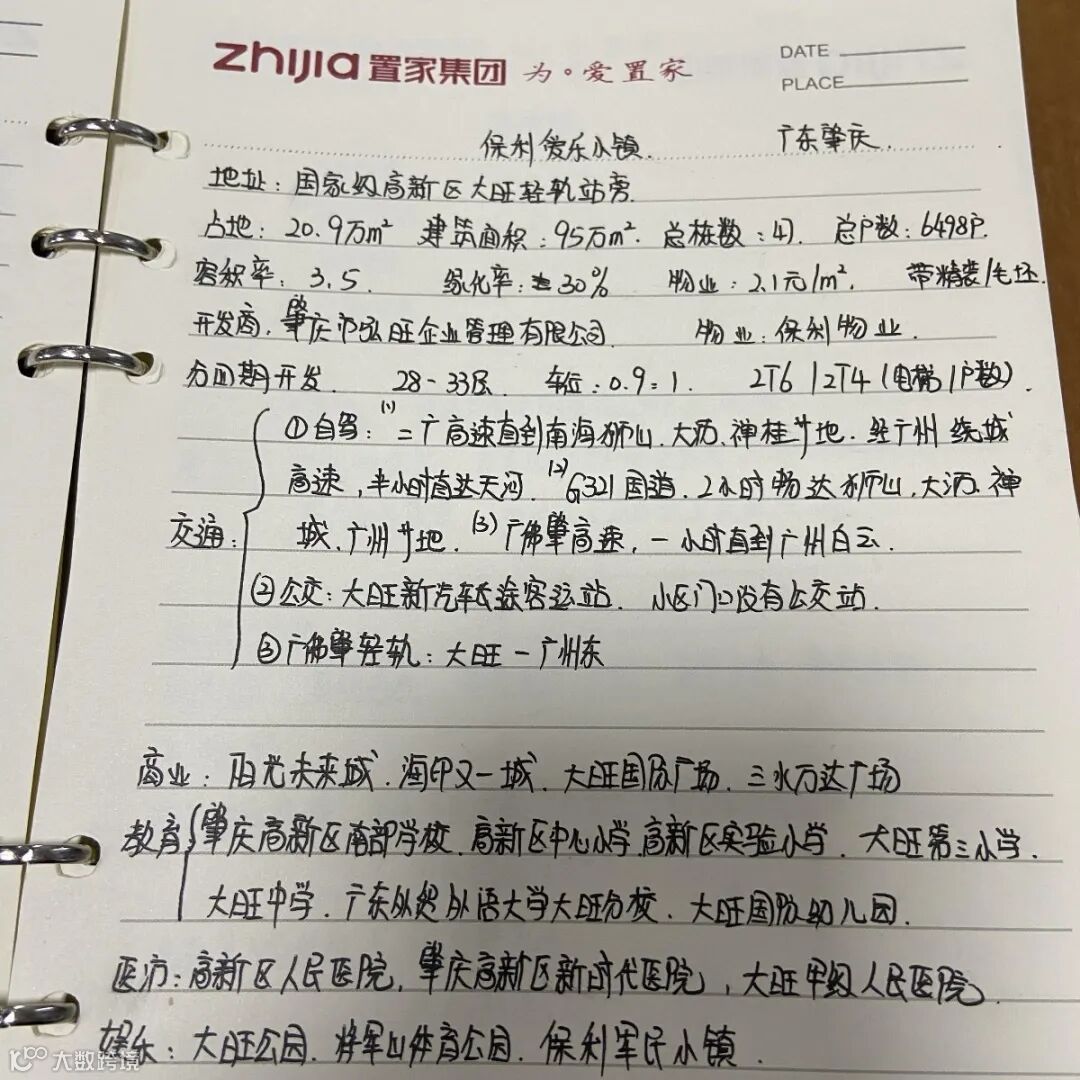 zhijia 置家集团 为·爱置家
DATE
PLACE
保利爱乐小镇. 广东肇庆.
地址：国家级高新区大旺轻轨站旁.
占地：20.9万m² 建筑面积：95万m². 总栋数：41. 总户数：6498户.
容积率：3.5. 绿化率：30% 物业：2.1元/m². 带精装/毛坯.
开发商：肇庆市弘旺企业管理有限公司. 物业：保利物业.
分四期开发. 28-33层. 车位：0.9:1. 2T6 / 2T4 (电梯/户数).
①自驾：(1)二广高速直到南海狮山、大沥、禅桂等地. 经广州绕城
高速，半小时直达天河. (2)G321国道. 2小时畅达狮山，大沥、禅
交通： 城、广州等地. (3)广佛肇高速，一小时直到广州白云.
②公交：大旺新汽车长途客运站. 小区门口设有公交站.
③广佛肇轻轨：大旺－广州东
商业：阳光未来城. 海印又一城. 大旺国际广场. 三水万达广场
教育 肇庆高新区南部学校. 高新区中心小学. 高新区实验小学. 大旺第三小学.
大旺中学. 广东外贸外语大学大旺分校. 大旺国际幼儿园.
医疗：高新区人民医院，肇庆高新区新时代医院，大旺甲级人民医院.
娱乐：大旺公园. 将军山体育公园. 保利军民小镇.
大数跨境